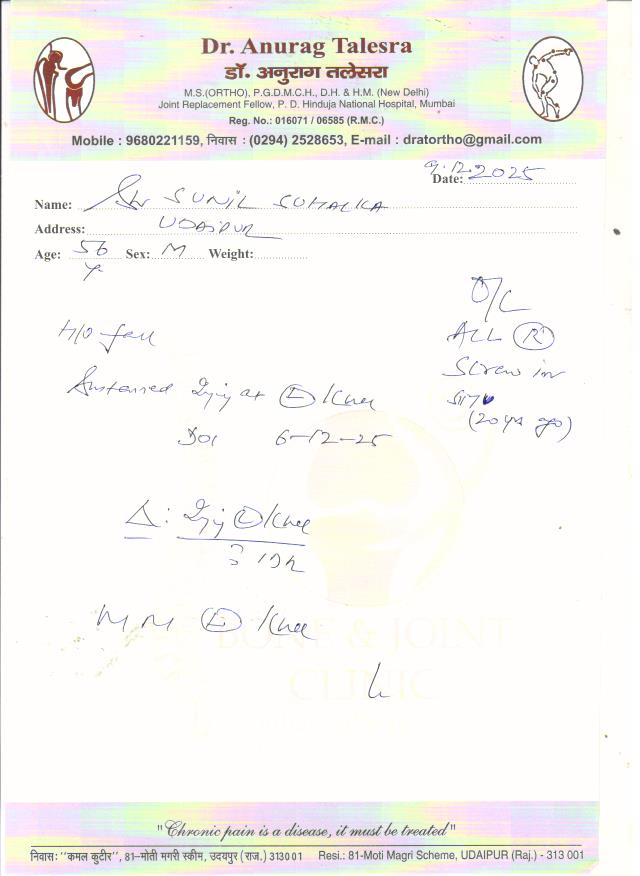 Dr. Anurag Talesra
डॉ. अनुराग तलेसरा
M.S.(ORTHO), P.G.D.M.C.H., D.H. & H.M. (New Delhi)
Joint Replacement Fellow, P. D. Hinduja National Hospital, Mumbai
Reg. No.: 016071 / 06585 (R.M.C.)
Mobile : 9680221159, निवास : (0294) 2528653, E-mail : dratortho@gmail.com
Date: 9.12.2025
Name: SUNIL
Address: UDAIPUR
Age: 56 Sex: M Weight:
yr
O/C
H/O fall
R
Screw in
situ
at L Knee
(20 yrs ago)
DOI 6-12-25
Δ: Injury L Knee
?
L Knee
BONE & JOINT
CLINIC
"Chronic pain is a disease, it must be treated"
निवास: "कमल कुटीर", 81-मोती मगरी स्कीम, उदयपुर (राज.) 313001 Resi.: 81-Moti Magri Scheme, UDAIPUR (Raj.) - 313 001